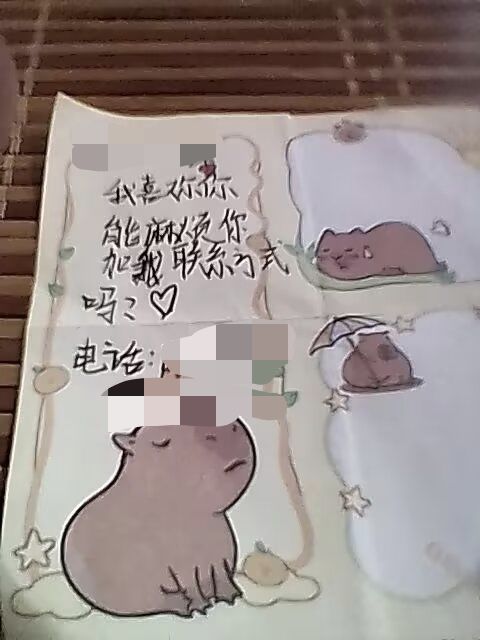 我喜欢你
能麻烦你
加我联系方式
吗？♡
电话：